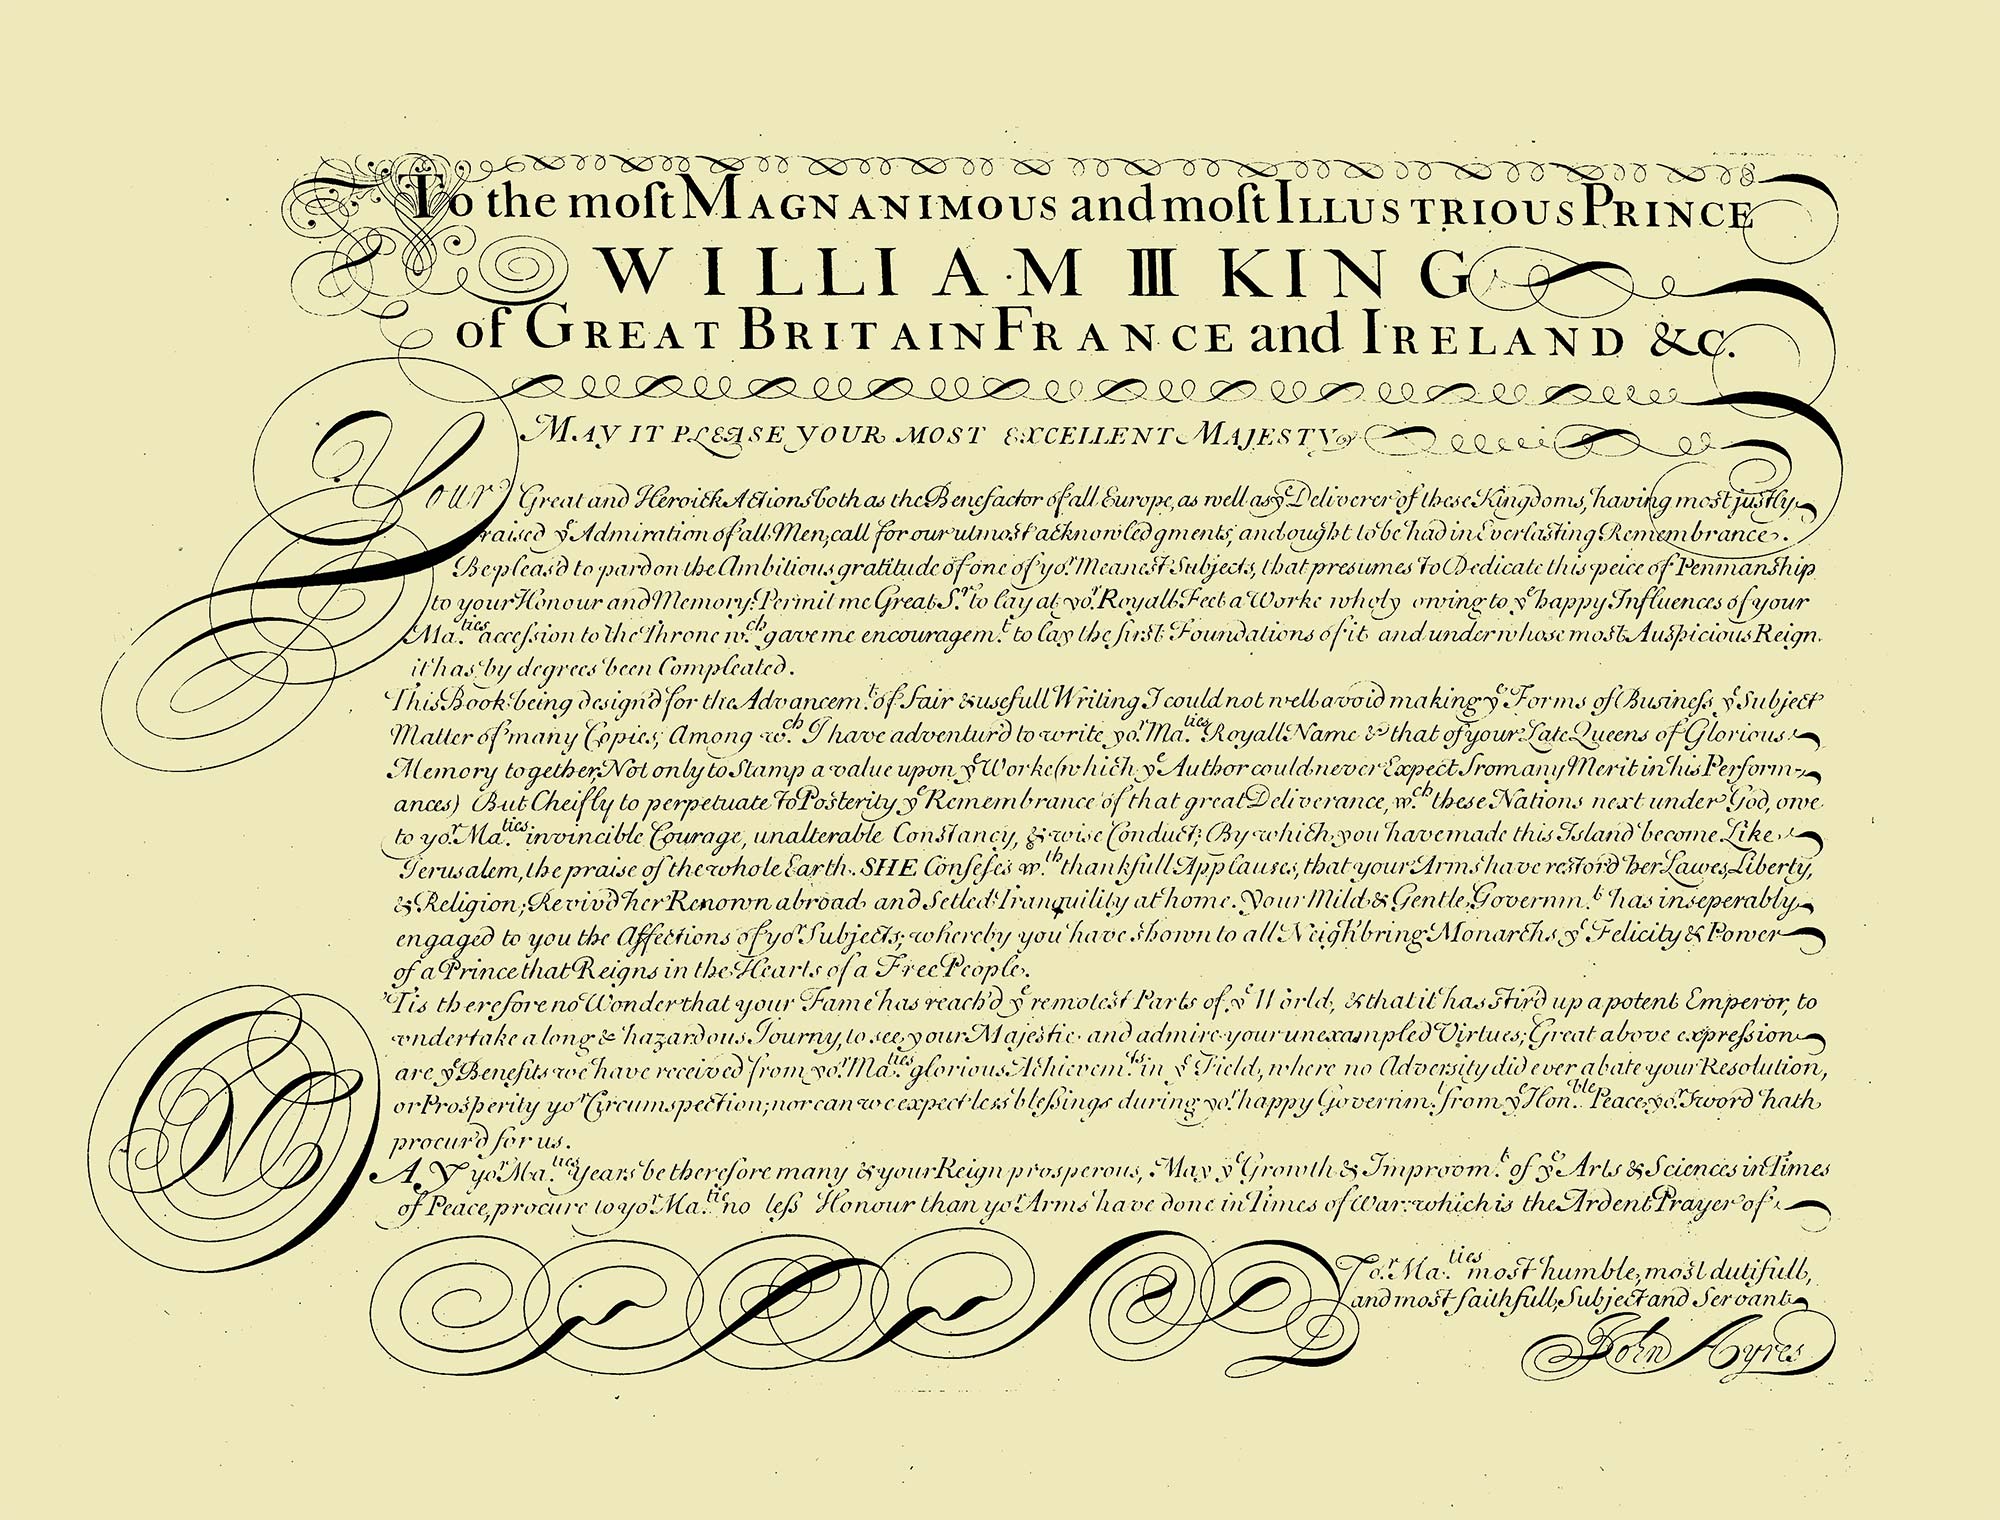 To the moſt MAGNANIMOUS and moſt ILLUSTRIOUS PRINCE
WILLIAM III KING
of GREAT BRITAIN FRANCE and IRELAND &c.
MAY IT PLEASE YOUR MOST EXCELLENT MAJESTY
Your Great and Heroick Actions both as the Benefactor of all Europe, as well as yͤ Deliverer of these Kingdoms, having most justly
raised yͤ Admiration of all Men, call for our utmost acknowledgments, and ought to be had in Everlasting Remembrance.
Be pleas'd to pardon the Ambitious gratitude of one of yoʳ. Meanest Subjects, that presumes To Dedicate this peice of Penmanship
to your Honour and Memory: Permit me Great Sʳ. to lay at yoʳ. Royall Feet a Worke wholy owing to yͤ happy Influences of your
Ma.ᵗⁱᵉˢ accession to the Throne w.ᶜʰ gave me encouragem.ᵗ to lay the first Foundations of it and under whose most Auspicious Reign
it has by degrees been Compleated.
This Book being design'd for the Advancem.ᵗ of fair & usefull Writing I could not well avoid making yͤ Forms of Busineſs yͤ Subject
Matter of many Copies; Among w.ᶜʰ I have adventur'd to write yoʳ. Ma.ᵗⁱᵉˢ Royall Name & that of your Late Queens of Glorious
Memory together, Not only to Stamp a value upon yͤ Worke (which yͤ Author could never Expect from any Merit in his Perform-
ances) But Cheifly to perpetuate To Posterity yͤ Remembrance of that great Deliverance, w.ᶜʰ these Nations next under God, owe
to yoʳ. Ma.ᵗⁱᵉˢ invincible Courage, unalterable Constancy, & wise Conduct; By which you have made this Island become Like
Jerusalem, the praise of the whole Earth. SHE Confeſes w.ᵗʰ thankfull Applauses, that your Arms have restor'd her Lawes, Liberty,
& Religion; Reviv'd her Renown abroad and Setled Tranquility at home. Your Mild & Gentle Governm.ᵗ has inseperably
engaged to you the Affections of yoʳ Subjects; whereby you have shown to all Neighbring Monarchs yͤ Felicity & Power
of a Prince that Reigns in the Hearts of a Free People.
'Tis therefore no Wonder that your Fame has reach'd yͤ remotest Parts of yͤ World, & that it has stir'd up a potent Emperor, to
undertake a long & hazardous Journy, to see your Majestie and admire your unexampled Virtues; Great above expreſsion
are yͤ Benefits we have received from yoʳ. Ma.ᵗⁱᵉˢ glorious Achievem.ᵗˢ in yͤ Field, where no Adversity did ever abate your Resolution,
or Prosperity yoʳ Circumspection; nor can we expect leſs bleſsings during yoʳ. happy Governm.ᵗ from yͤ Hon.ᵇˡᵉ Peace, yoʳ. Sword hath
procur'd for us.
MAY yoʳ Ma.ᵗⁱᵉˢ Years be therefore many & your Reign prosperous, May yͤ Growth & Improvm.ᵗ of yͤ Arts & Sciences in Times
of Peace, procure to yoʳ Ma.ᵗⁱᵉ no leſs Honour than yoʳ Arms have done in Times of War: which is the Ardent Prayer of
Yoʳ. Ma.ᵗⁱᵉˢ most humble, most dutifull,
and most faithfull Subject and Servant
John Ayres